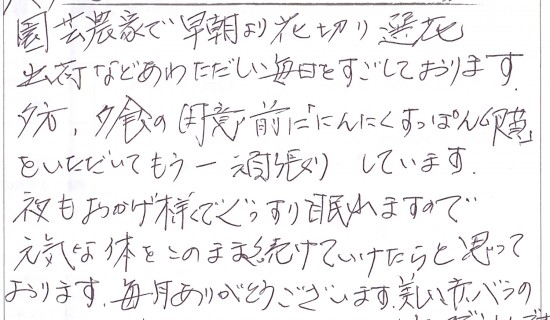 園芸農家で早朝より花切り選花
出荷などあわただしい毎日をすごしております.
夕方、夕食の用意前に「にんにくすっぽん心臓」
をいただいてもう一頑張り しています.
夜もおかげ様でぐっすり眠れますので
元気な体をこのまま続けていけたらと思って
おります.毎月ありがとうございます.美しい赤いバラの